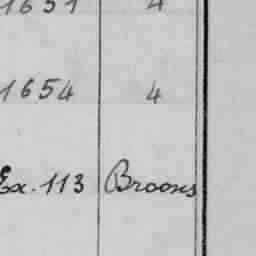 1651 4
1654 4
Ex. 113 Broons